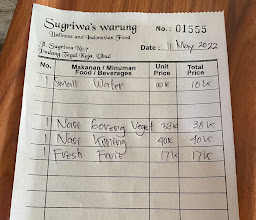 Sugriwa's warung
Balinese and Indonesian Food
No.: 01555
Jl. Sugriwa No.7
Padang Tegal Kaja, Ubud
Date: 11 May 2022
No. Makanan / Minuman Food / Beverages Unit Price Total Price
1 Small Water 10k 10k
1 Nasi Goreng Veget 38k 38k
1 Nasi Kuning 40k 40k
1 Fresh Fruit 17k 17k